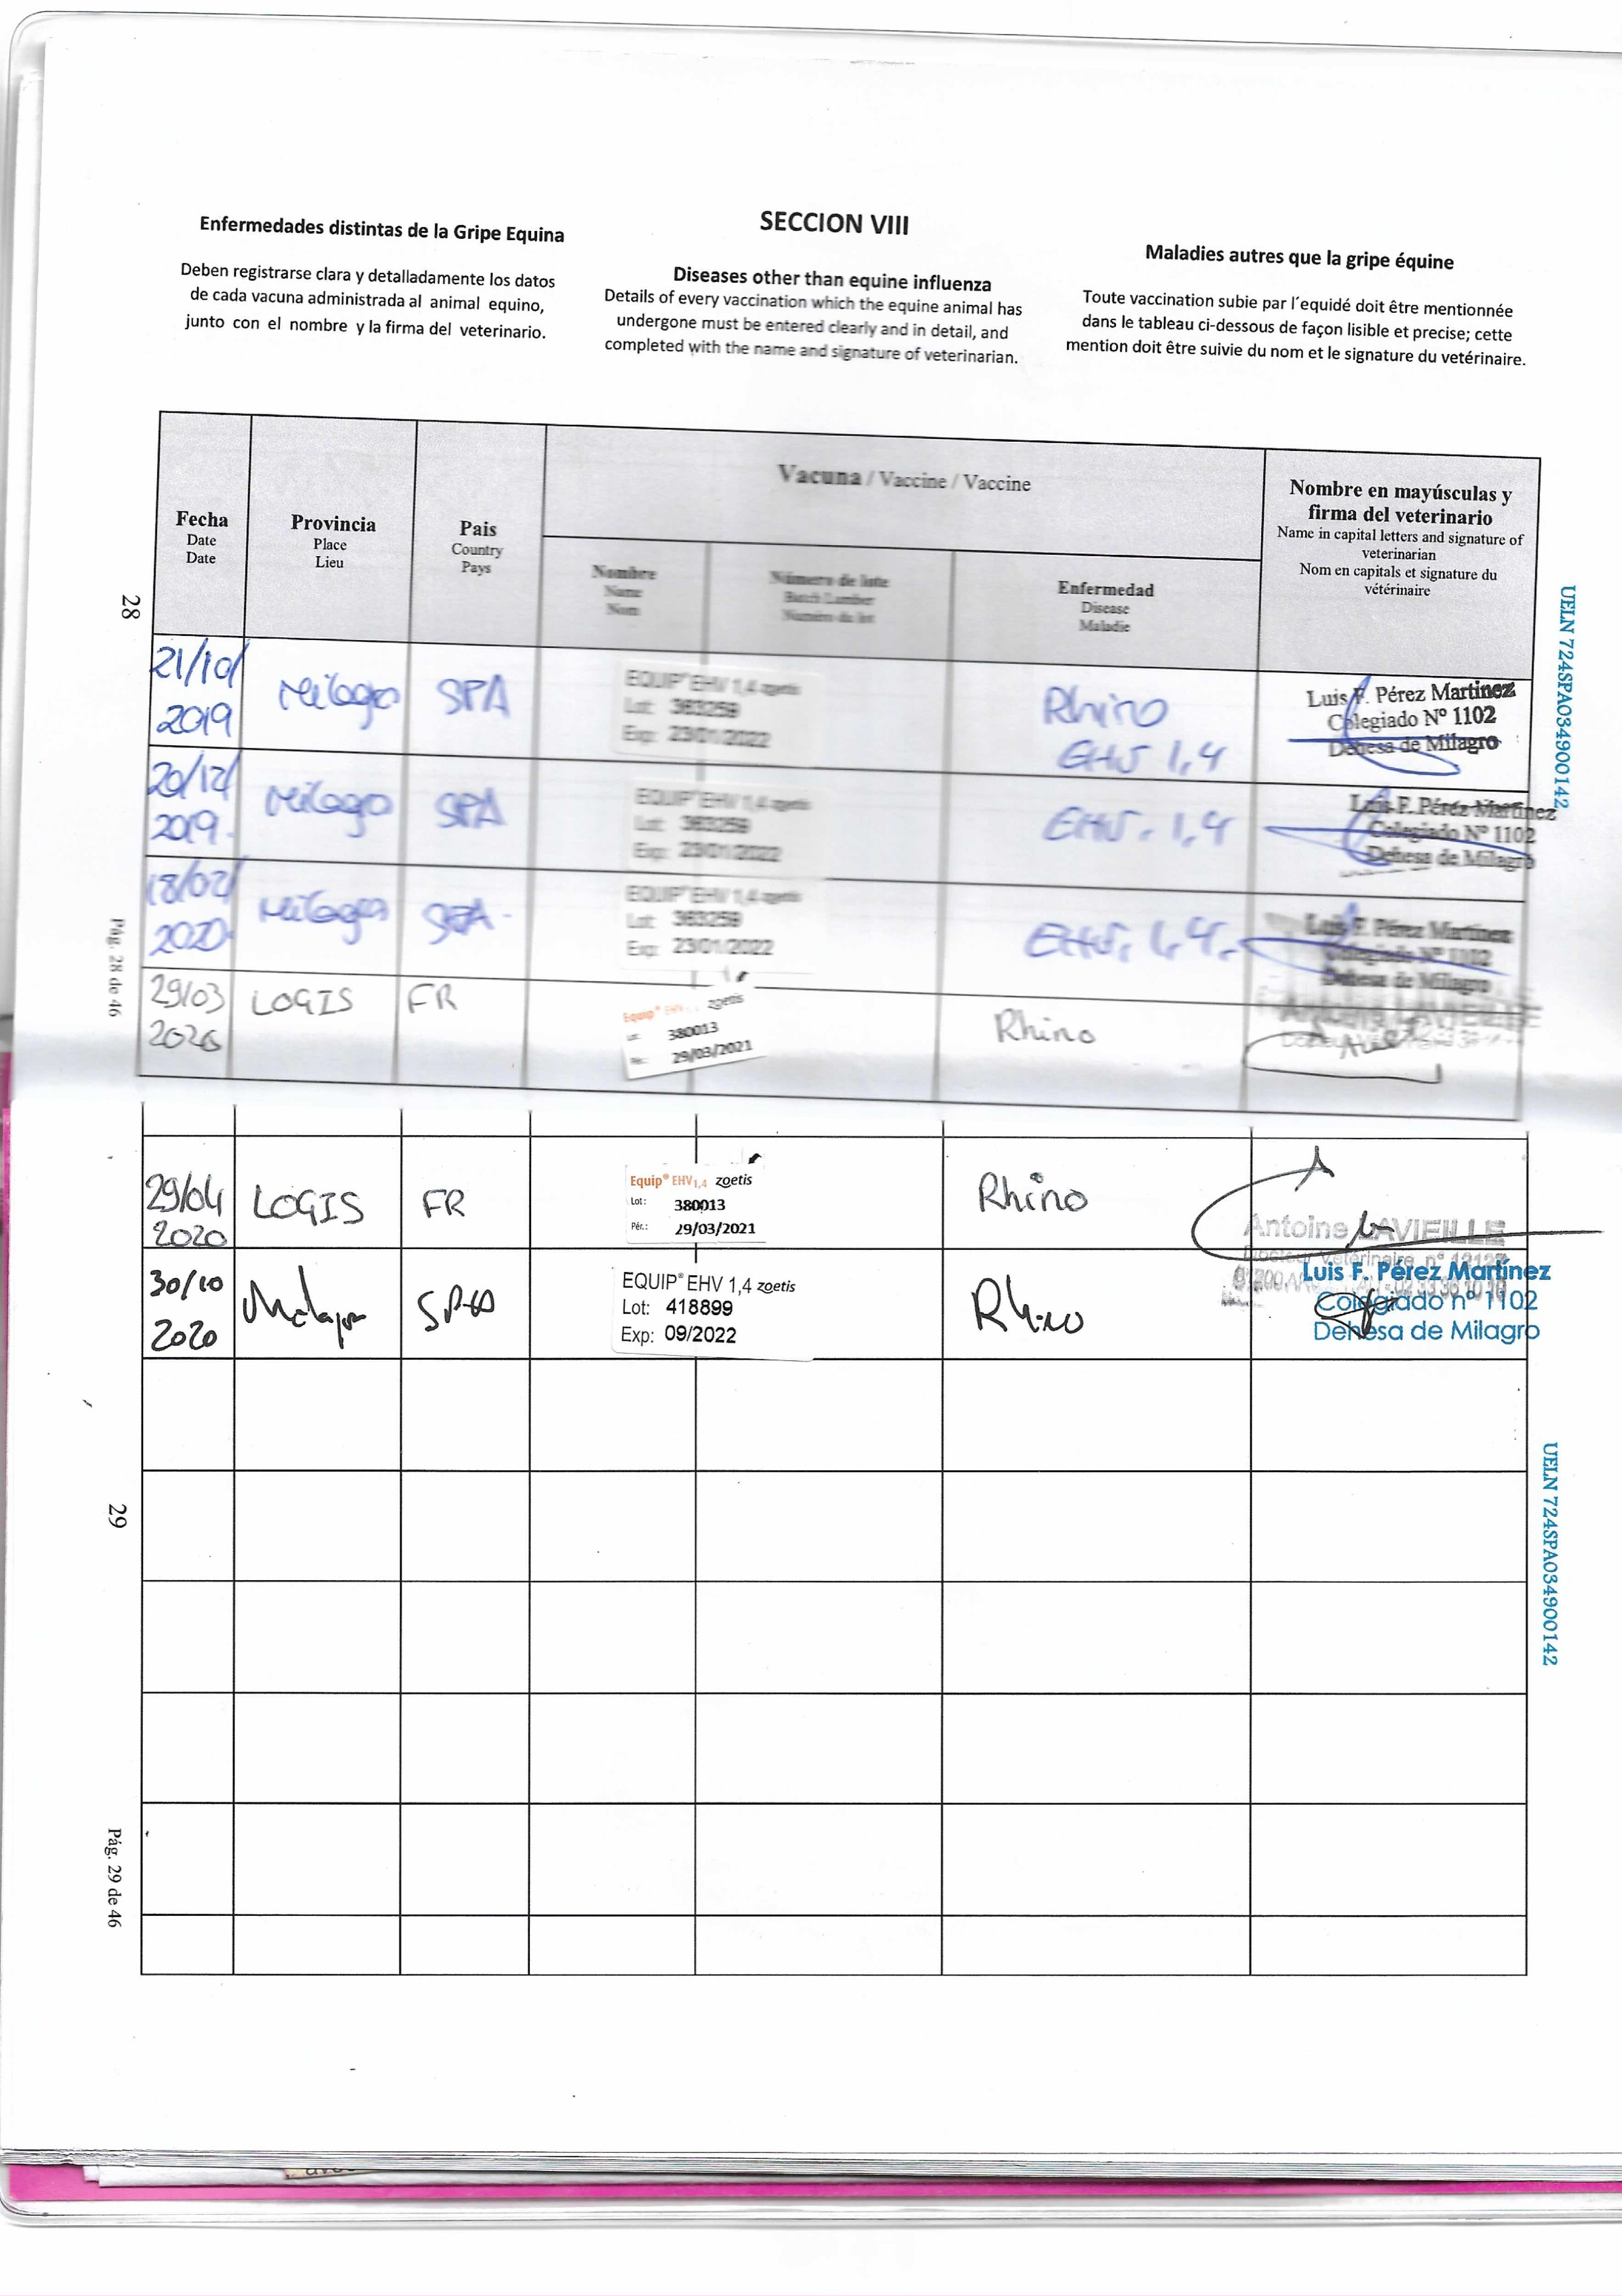 SECCION VIII
Enfermedades distintas de la Gripe Equina
Deben registrarse clara y detalladamente los datos
de cada vacuna administrada al animal equino,
junto con el nombre y la firma del veterinario.
Diseases other than equine influenza
Details of every vaccination which the equine animal has
undergone must be entered clearly and in detail, and
completed with the name and signature of veterinarian.
Maladies autres que la gripe équine
Toute vaccination subie par l´equidé doit être mentionnée
dans le tableau ci-dessous de façon lisible et precise; cette
mention doit être suivie du nom et le signature du vetérinaire.
Fecha
Date
Date
Provincia
Place
Lieu
Pais
Country
Pays
Vacuna / Vaccine / Vaccine
Nombre
Name
Nom
Número de lote
Batch Lumber
Numéro du lot
Enfermedad
Disease
Maladie
Nombre en mayúsculas y
firma del veterinario
Name in capital letters and signature of
veterinarian
Nom en capitals et signature du
vétérinaire
21/10/
2019
Milagro
SPA
EQUIP® EHV 1,4 zoetis
Lot: 363259
Exp: 23/01/2022
Rhino
EHV 1,4
Luis F. Pérez Martinez
Colegiado Nº 1102
Dehesa de Milagro
20/12/
2019.
Milagro
SPA
EQUIP® EHV 1,4 zoetis
Lot: 363259
Exp: 23/01/2022
EHV. 1,4
Luis F. Pérez Martinez
Colegiado Nº 1102
Dehesa de Milagro
18/02/
2020.
Milagro
SPA.
EQUIP® EHV 1,4 zoetis
Lot: 363259
Exp: 23/01/2022
EHV. 1,4.
Luis F. Pérez Martinez
Colegiado Nº 1102
Dehesa de Milagro
29/03
2020
LOGIS
FR
Equip® EHV zoetis
380013
29/03/2021
Rhino
Antoine LAVIEILLE
29/04
2020
LOGIS
FR
Equip® EHV1,4 zoetis
Lot: 380013
Pér.: 29/03/2021
Rhino
Antoine LAVIEILLE
Docteur Vétérinaire n°
30/10
2020
SPA
EQUIP® EHV 1,4 zoetis
Lot: 418899
Exp: 09/2022
Rhino
Luis F. Pérez Martínez
Colegiado nº 1102
Dehesa de Milagro
28
Pág. 28 de 46
UELN 724SPA034900142
29
Pág. 29 de 46
UELN 724SPA034900142